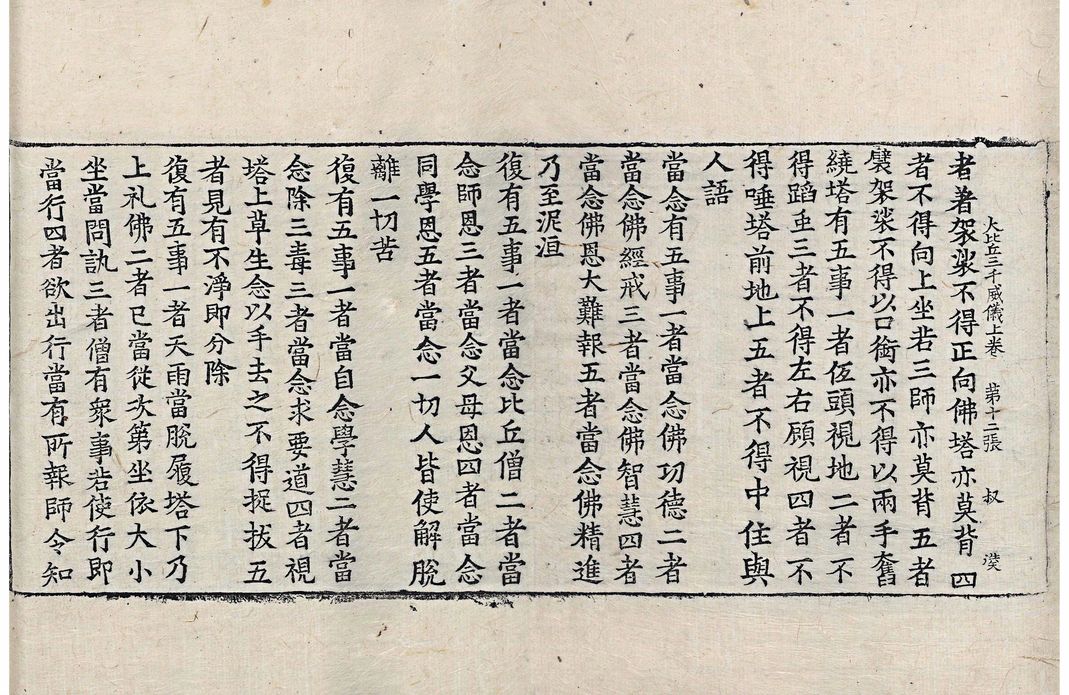 大比丘三千威儀上卷 第十二張 叔 漢
者著袈裟不得正向佛塔亦莫背四
者不得向上坐若三師亦莫背五者
襞袈裟不得以口銜亦不得以兩手奮
繞塔有五事一者伍頭視地二者不
得蹈虫三者不得左右顧視四者不
得唾塔前地上五者不得中住與
人語
當念有五事一者當念佛功德二者
當念佛經戒三者當念佛智慧四者
當念佛恩大難報五者當念佛精進
乃至泥洹
復有五事一者當念比丘僧二者當
念師恩三者當念父母恩四者當念
同學恩五者當念一切人皆使解脫
離一切苦
復有五事一者當自念學慧二者當
念除三毒三者當念求要道四者視
塔上草生念以手去之不得捉拔五
者見有不淨即分除
復有五事一者天雨當脫履塔下乃
上礼佛二者已當從次第坐依大小
坐當問訊三者僧有衆事若使行即
當行四者欲出行當有所報師令知